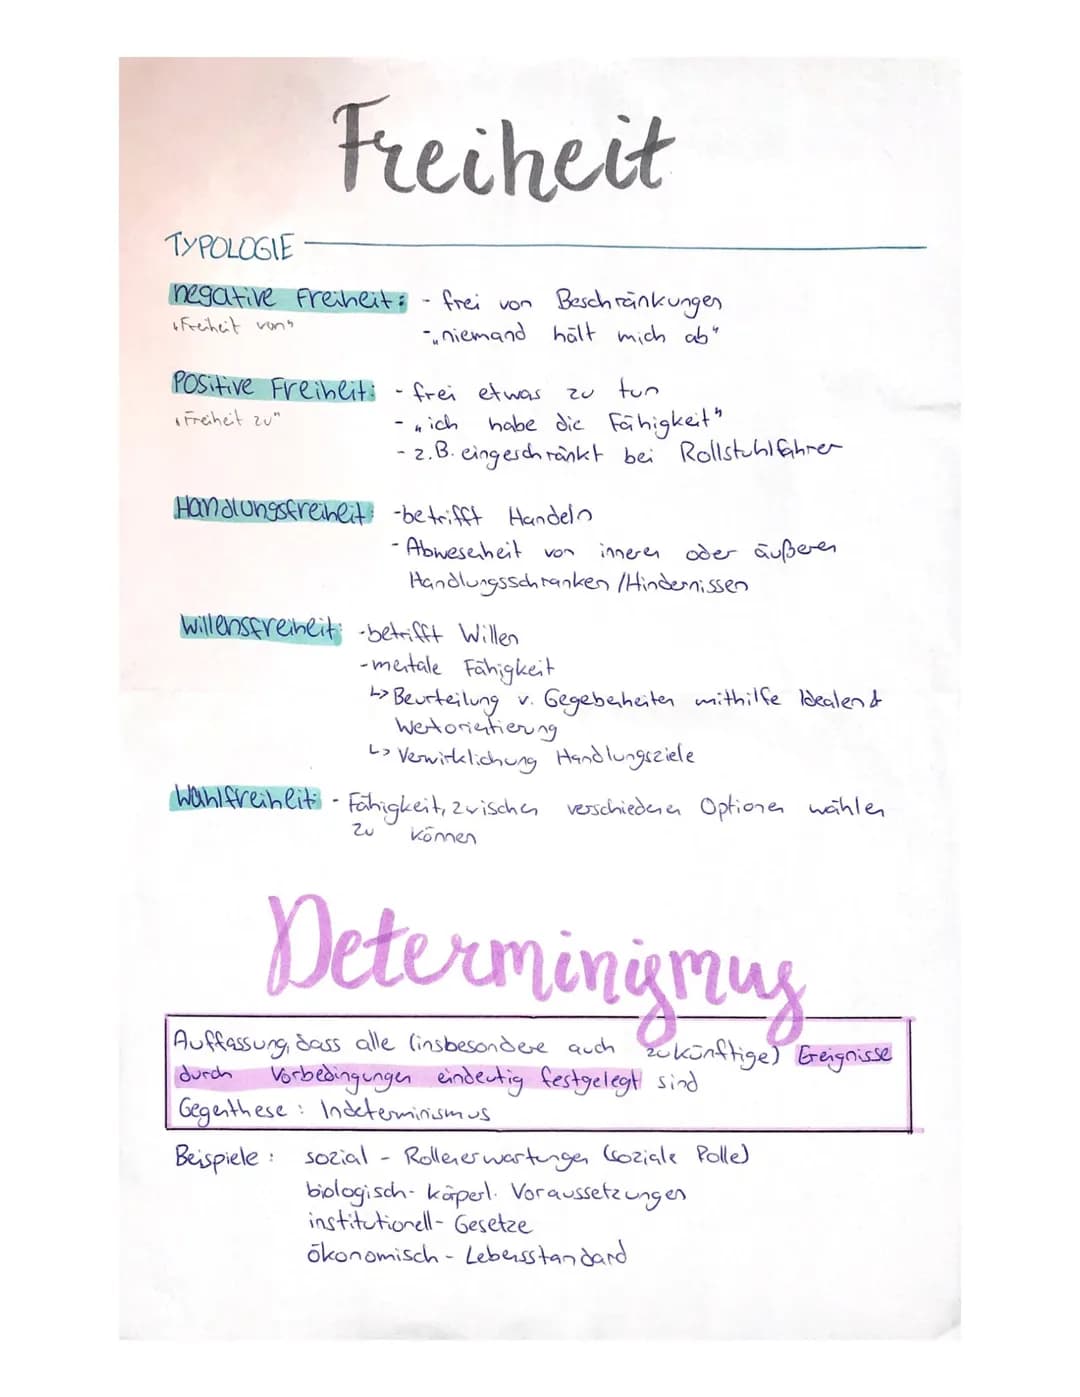 Freiheit
TYPOLOGIE
negative Freiheit: - frei von Beschränkungen
"Freiheit von" - "niemand hält mich ab"
Positive Freiheit: - frei etwas zu tun
"Freiheit zu" - "ich habe die Fähigkeit"
- z.B. eingeschränkt bei Rollstuhlfahrer
Handlungsfreiheit: - betrifft Handeln
- Abwesenheit von inneren oder äußeren
Handlungsschranken / Hindernissen
Willensfreiheit: - betrifft Willen
- mentale Fähigkeit
↳ Beurteilung v. Gegebenheiten mithilfe Idealen &
Wertorientierung
↳ Verwirklichung Handlungsziele
Wahlfreiheit: - Fähigkeit, zwischen verschiedenen Optionen wählen
zu können
Determinismus
Auffassung, dass alle (insbesondere auch zukünftige) Ereignisse
durch Vorbedingungen eindeutig festgelegt sind
Gegenthese: Indeterminismus
Beispiele: sozial - Rollenerwartungen (soziale Rolle)
biologisch - körperl. Voraussetzungen
institutionell - Gesetze
ökonomisch - Lebensstandard